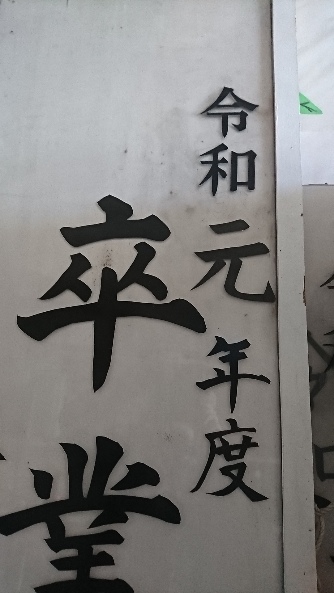 令和元年度
卒業